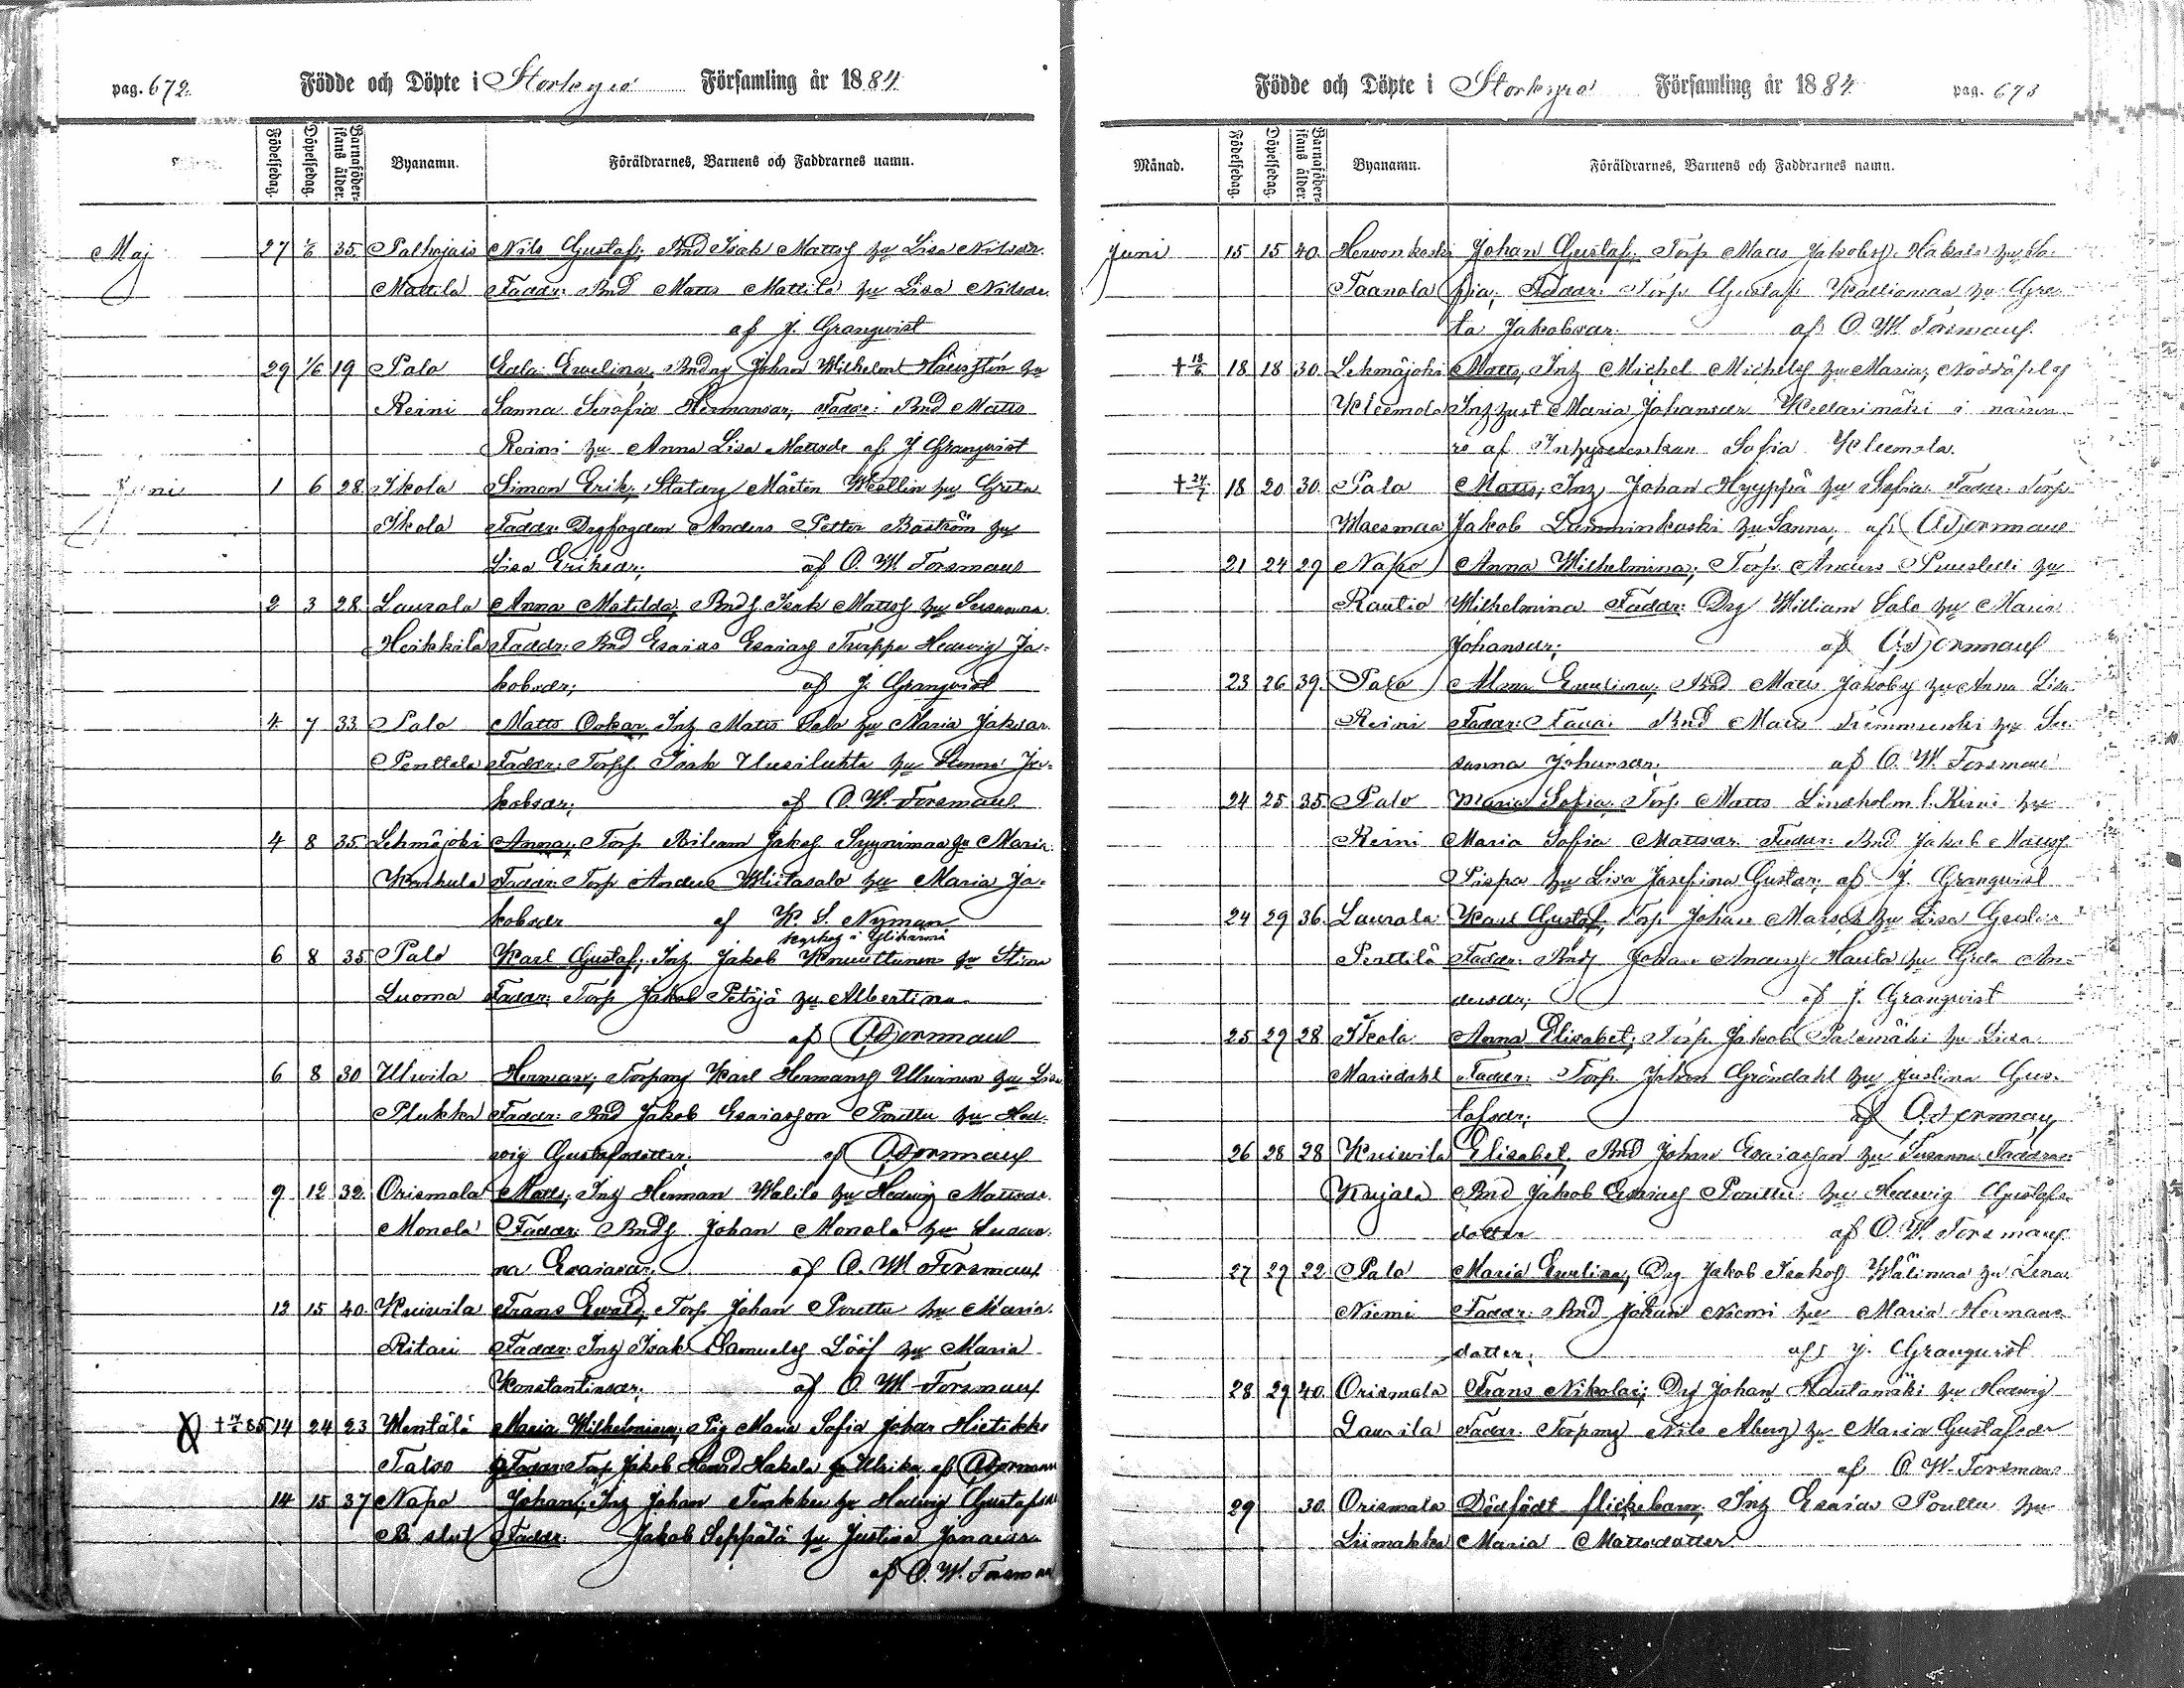 pag. 672.
Födde och Döpte i Storkyro Församling år 1884
Födelsedag. Döpelsedag. Barnaföderskans ålder. Byanamn. Föräldrarnes, Barnens och Faddrarnes namn.
Maj 27 1/6 35 Palhojais Nils Gustaf; Bnd Isak Mattss hu Lisa Nilsdr.
Mattila Faddr: Bnd Matts Mattila hu Lisa Nilsdr.
af J. Granqvist
29 1/6 19 Palo Emelina, Johan Wilhelm hu
Reini Sanna Serafia Hermansdr, Faddr: Bnd Matts
Reini hu Anna Lisa Mattsdr af J Granqvist
Juni 1 6 28 Ikola Simon Erik; Statdrg Mårten Wallin hu Greta
Ikola Faddr: Drgfogden Anders Petter Båström hu
Lisa Eriksdr; af O. W. Forsmans
2 3 28 Laurola Anna Matilda; Bnds Isak Mattss hu Susanna
Heikkilä Faddr: Bnd Esaias Esaiass Turppa Hedvig Ja-
kobsdr; af J. Granqvist
4 7 33 Palo Matts Oskar, Inh Matts Palo hu Maria Jaksdr
Penttala Faddr: Torps. Isak Uusiluhta hu Ja-
kobsdr; af O. W. Forsmans
4 8 35 Lehmäjoki Anna; Torp Jakss Syynimaa hu Maria
Karhula Faddr: Torp Anders Wiitasalo hu Maria Ja-
kobsdr af K. S. Nyman
kyrkoh i Ylihärmä
6 8 35 Palo Karl Gustaf; Inh Jakob Knuuttunen hu Stina
Luoma Faddr: Torp Jakob Petäjä hu Albertina
af O Forsmans
6 8 30 Ulvila Herman; Torpmg Karl Hermanss Ulvinen hu Lisa
Plukka Faddr: Bnd Jakob Esaiasson Pouttu hu Hed-
vig Gustafsdotter. af O Forsmans
9 12 32 Orismala Matts; Inh Herman Walila hu Hedvig Mattsdr
Monola Faddr: Bnds Johan Monola hu Susan-
na Esaiasdr. af O. W. Forsmans
12 15 40 Kuivila Frans Evald; Torp Johan Pouttu hu Maria.
Ritari Faddr: Inh Isak Samuelss Lööf hu Maria
Konstantinsdr. af O. W. Forsmans
† 85 14 24 23 Wentälä Maria Wilhelmina; Pig Maria Sofia Johsdr Hietikko
Taloo Faddr: Torp Jakob Hakola hu Ulrika af O Forsmans
14 15 37 Napo Johan; Inh Johan Turkku hu Hedvig Gustafsdr
B slut Faddr: Jakob Seppälä hu Justina
af O. W. Forsman
Födde och Döpte i Storkyro Församling år 1884
pag. 673
Månad. Födelsedag. Döpelsedag. Barnaföderskans ålder. Byanamn. Föräldrarnes, Barnens och Faddrarnes namn.
Juni 15 15 40. Hevonkoski Johan Gustaf; Torp Matts Jakobss. Hakala hu So-
Taanola fia; Faddr: Torp Gustaf Kalliomaa hu Gre-
ta Jakobsdr. af O. W. Forsmans.
† 18/6 18 18 30. Lehmäjoki Matts, Inh Michel Michelss hu Maria; Nöddöpt af
Kleemola Inhhust Maria Johansdr Kellarimäki i närva-
ro af Inhysesenkan Sofia Kleemola.
† 24/7 18 20 30. Palo Matts; Inh Johan Hyyppä hu Sofia Faddr. Torp
Waesmaa Jakob Lamminkoski hu Sanna; af O Forsmans
21 24 29 Napo Anna Wilhelmina; Torp Anders hu
Rautio Wilhelmina Faddr: Drg William Salo hu Maria
Johansdr; af O Forsmans
23 26 39. Palo Alma Emelina; Bnd Matts Jakobss hu Anna Lisa
Reini Faddr: Bnd Matts hu Su-
sanna Johansdr; af O. W. Forsmans
24 25 35 Palo Maria Sofia; Torp Matts Lindholm l. Reini hu
Reini Maria Sofia Mattsdr. Faddr: Bnd Jakob Mattss
Pispa hu Lisa Josefina Gustdr; af J. Granqvist
24 29 36. Laurola Karl Gustaf, Torp Johan hu Lisa
Penttilä Faddr: Bnds Johan Anderss Hautä hu Greta An-
dersdr; af J. Granqvist
25 29 28 Ikola Anna Elisabet; Torp Jakob Palomäki hu Lisa
Mariedahl Faddr: Torp Johan Gröndahl hu Justina Gus-
tafsdr; af O Forsmans
26 28 28 Kuivila Elisabet, Bnd Johan Esaiasson hu Susanna Faddrar:
Kujala Bnd Jakob Esaiass Pouttu hu Hedvig Gustafs-
dotter af O. W. Forsmans.
27 29 22 Palo Maria Emelina; Drg Jakob Isakss Wälimaa hu Lena
Niemi Faddr: Bnd Johan Niemi hu Maria Hermans-
dotter; af J. Granqvist
28 29 40. Orismala Frans Nikolai; Drg Johan Hautamäki hu Hedvig
Laurila Faddr: Torpmg Nils Åberg hu Maria Gustafsdr
af O. W. Forsmans
29 30. Orismala Dödfödt flickebarn; Inh Esaias Pouttu hu
Liimakka Maria Mattsdotter